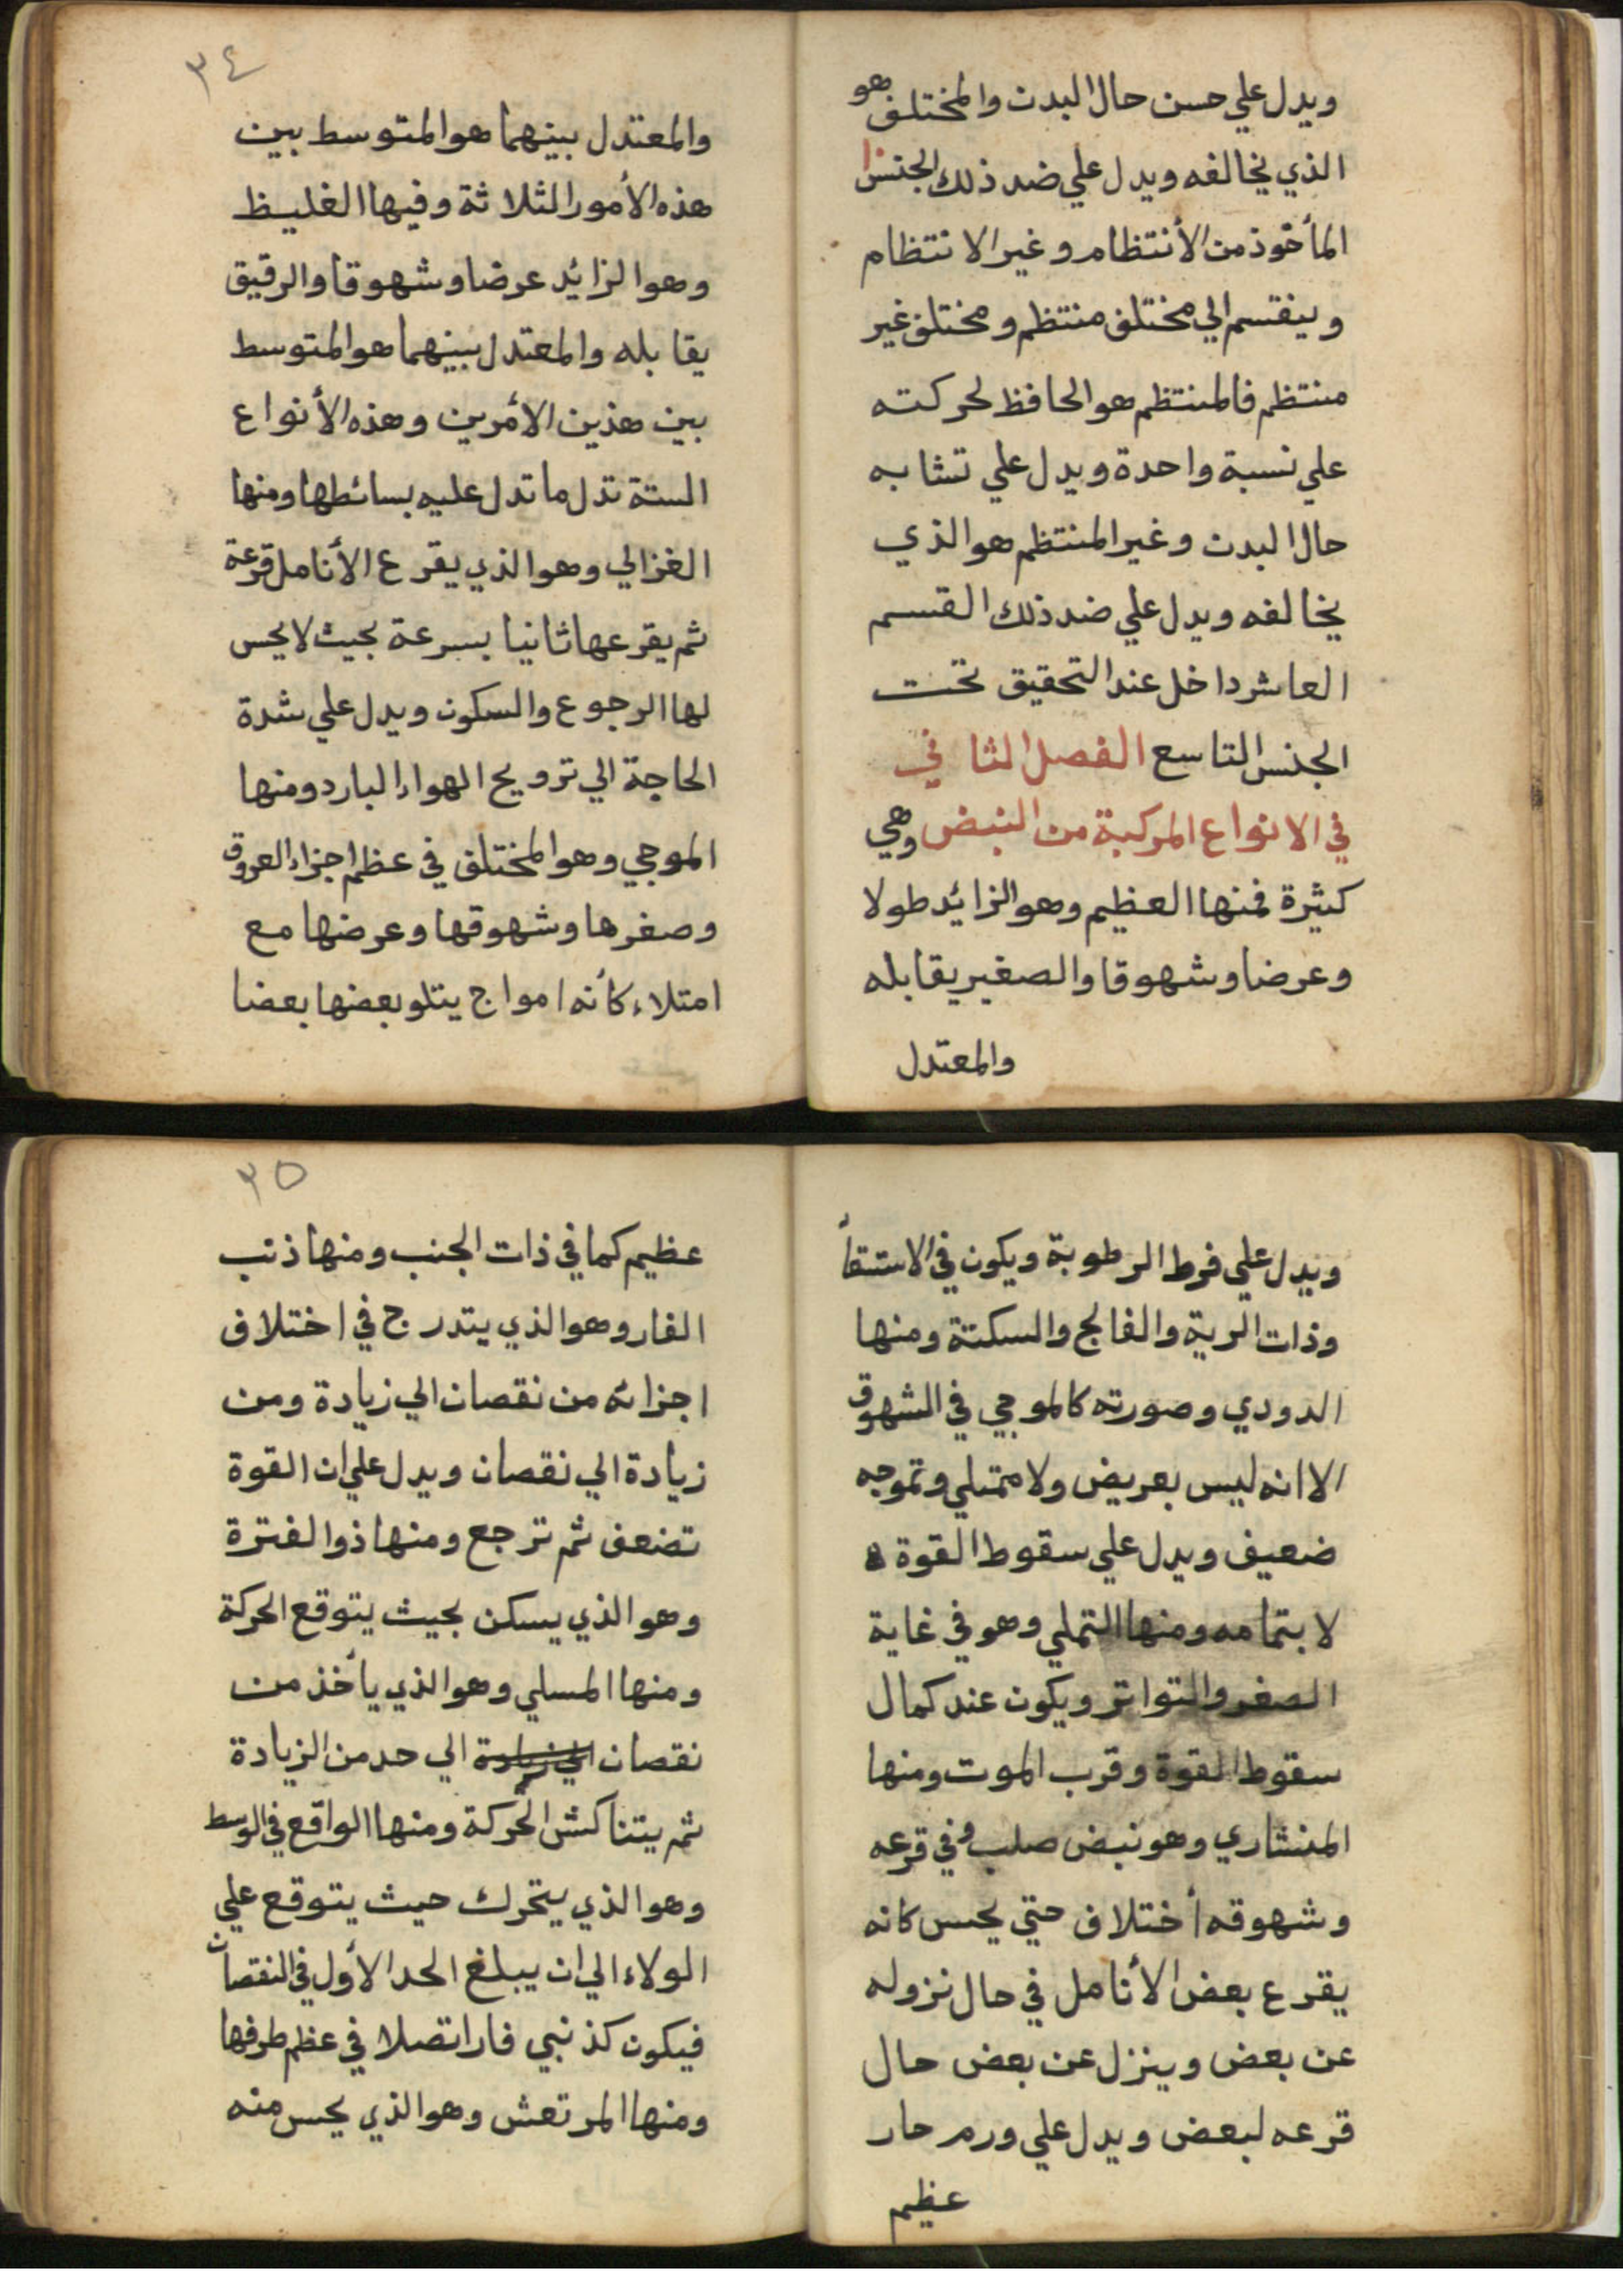 ويدل علي حسن حال البدن والمختلف هو
الذي يخالفه ويدل علي ضد ذلك الجنس
المأخوذ من الأنتظام وغير الانتظام
وينقسم الي مختلف منتظم ومختلف غير
منتظم فالمنتظم هو الحافظ لحركته
علي نسبة واحدة ويدل علي تشابه
حال البدن وغير المنتظم هو الذي
يخالفه ويدل علي ضد ذلك القسم
العاشر داخل عند التحقيق تحت
الجنس التاسع الفصل الثاني
في الانواع المركبة من النبض وهي
كثيرة فمنها العظيم وهو الزائد طولا
وعرضا وشهوقا والصغير يقابله
والمعتدل
٣٤
والمعتدل بينهما هو المتوسط بين
هذه الأمور الثلاثة وفيها الغليظ
وهو الزائد عرضا وشهوقا والرقيق
يقابله والمعتدل بينهما هو المتوسط
بين هذين الأمرين وهذه الأنواع
الستة تدل ما تدل عليه بسائطها ومنها
الغزالي وهو الذي يقرع الأنامل قرعة
ثم يقرعها ثانيا بسرعة بحيث لا يحس
لها الرجوع والسكون ويدل علي شدة
الحاجة الي ترويح الهواء البارد ومنها
الموجي وهو المختلف في عظم اجزاء العروق
وصغرها وشهوقها وعرضها مع
امتلاء كأنه امواج يتلو بعضها بعضا
ويدل علي فرط الرطوبة ويكون في الاستسقأ
وذات الرية والفالج والسكتة ومنها
الدودي وصورته كالموجي في الشهوق
الا انه ليس بعريض ولا ممتلي وتموجه
ضعيف ويدل علي سقوط القوة
لا بتمامه ومنها النملي وهو في غاية
الصغر والتواتر ويكون عند كمال
سقوط القوة وقرب الموت ومنها
المنشاري وهو نبض صلب وفي قرعه
وشهوقه أختلاف حتي يحس كانه
يقرع بعض الأنامل في حال نزوله
عن بعض وينزل عن بعض حال
قرعه لبعض ويدل علي ورم حار
عظيم
٣٥
عظيم كما في ذات الجنب ومنها ذنب
الفار وهو الذي يتدرج في اختلاف
اجزائه من نقصان الي زيادة ومن
زيادة الي نقصان ويدل علي ان القوة
تضعف ثم ترجع ومنها ذو الفترة
وهو الذي يسكن بحيث يتوقع الحركة
ومنها المسلي وهو الذي يأخذ من
نقصان الي زيادة الي حد من الزيادة
ثم يتناكش الحركة ومنها الواقع في الوسط
وهو الذي يتحرك حيث يتوقع علي
الولاء الي ان يبلغ الحد الأول في النقصان
فيكون كذنبي فار اتصلا في عظم طرفها
ومنها المرتعش وهو الذي يحس منه